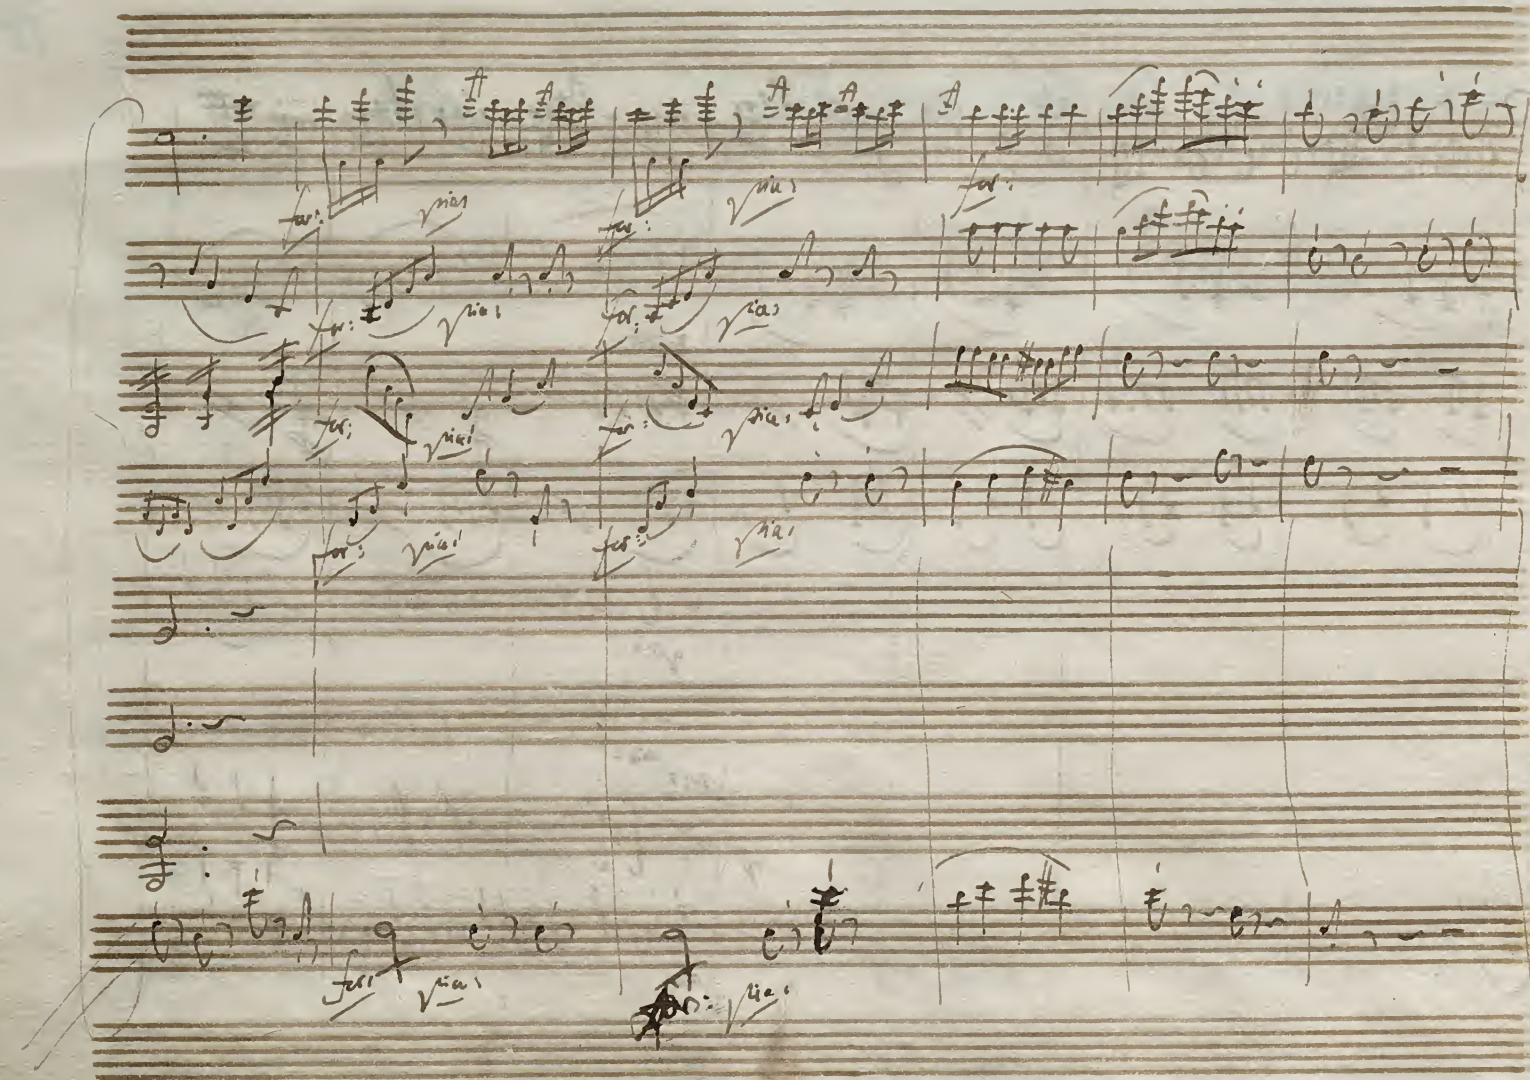 for: pia: for: pia: for:
for: pia: for: pia:
for: pia: for: pia:
for: pia: for: pia:
for: pia: for: pia: